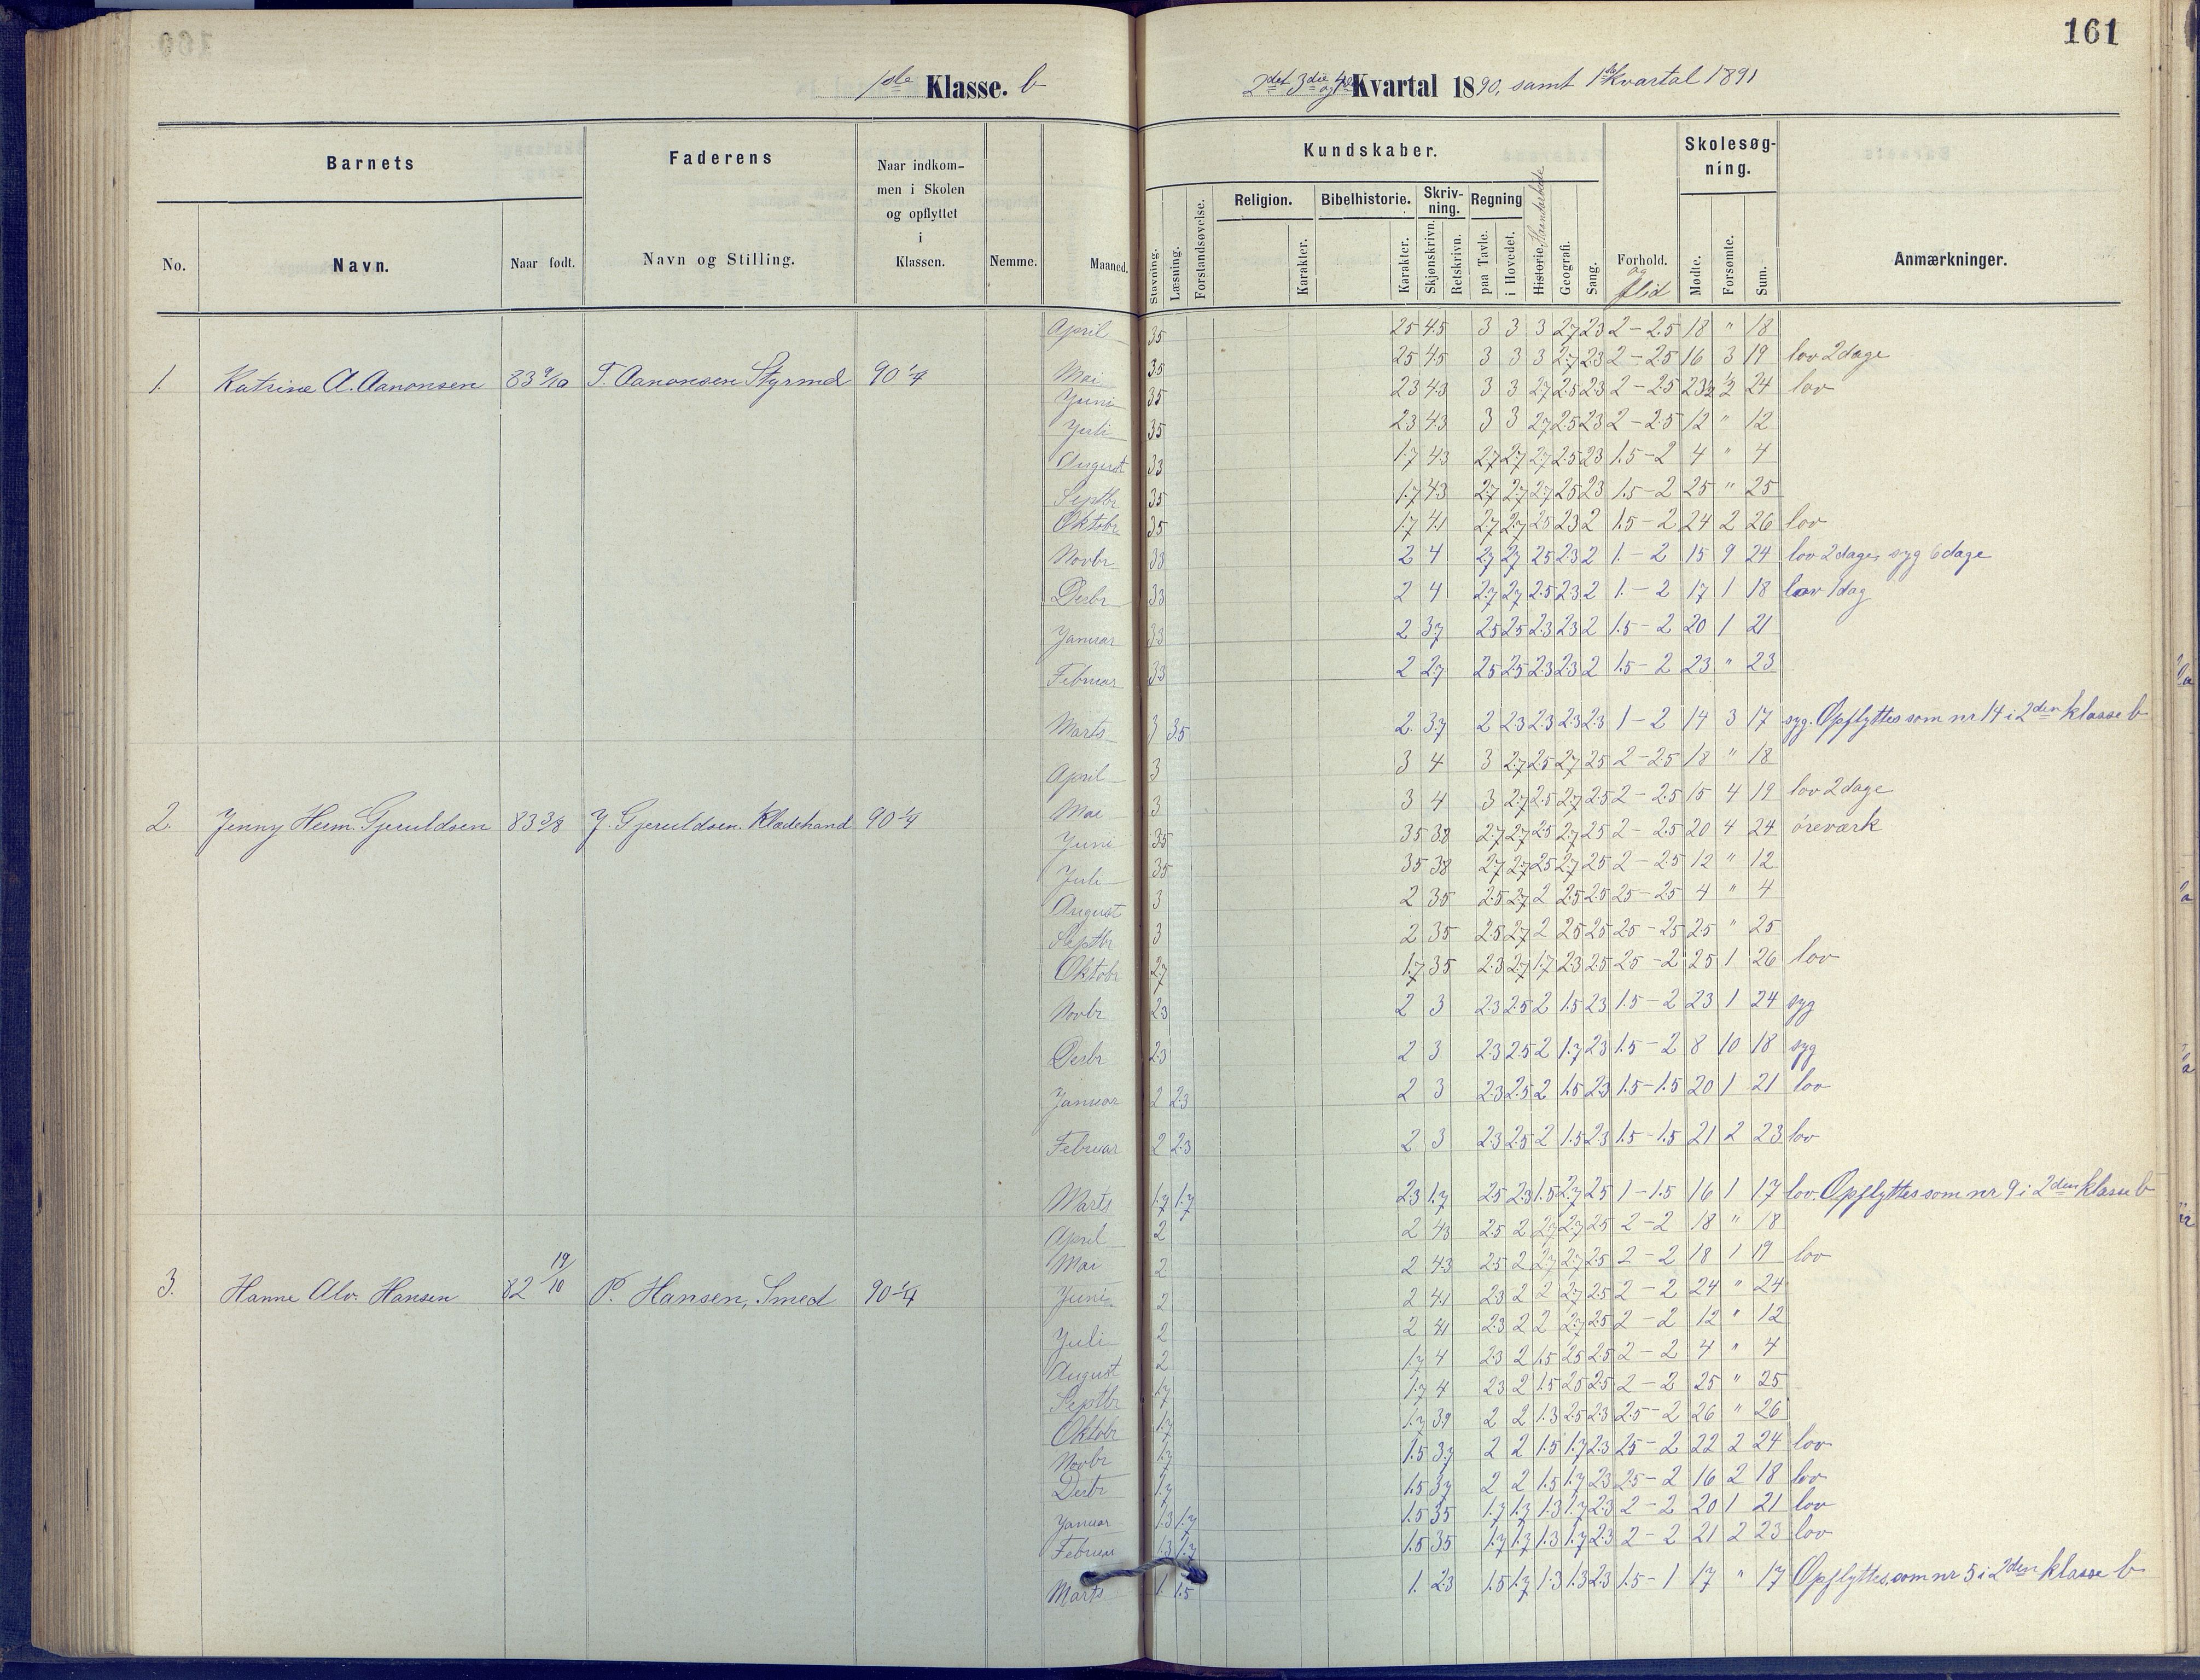 161
1ste Klasse. b
2det 3die og 4de Kvartal 1890, samt 1ste Kvartal 1891
Barnets
Faderens
Naar indkommen i Skolen og opflyttet i Klassen.
Kundskaber.
Skolesøgning.
No. Navn. Naar født. Navn og Stilling. Nemme. Maaned.
Stavning. Læsning. Forstandsøvelse. Religion. Karakter. Bibelhistorie. Karakter. Skrivning. Skjønskrivn. Retskrivn. Regning paa Tavle. i Hovedet. Historie. Haandarbeide Geografi. Sang. Forhold. og flid Mødte. Forsømte. Sum. Anmærkninger.
1. Katrine A. Aanonsen 83 9/10 T. Aanonsen Styrmd 90 1/4
April 35 25 4.5 3 3 3 27 23 2 – 2.5 18 " 18
Mai 35 25 45 3 3 3 27 23 2 – 25 16 3 19 lov 2 dage
Juni 35 23 43 3 3 27 25 23 2 – 2.5 23 1/2 1/2 24 lov
Juli 35 23 43 3 3 27 25 23 2 – 2.5 12 " 12
August 33 1.7 43 27 27 27 25 23 1.5 – 2 4 " 4
Septbr 35 1.7 43 27 27 27 25 23 1.5 – 2 25 " 25
Oktobr 35 1.7 41 27 27 25 23 2 1.5 – 2 24 2 26 lov
Novbr 33 2 4 27 27 25 23 2 1 – 2 15 9 24 lov 2 dage, syg 6 dage
Desbr 33 2 4 27 27 25 23 2 1 – 2 17 1 18 lov 1 dag
Januar 33 2 37 25 25 23 23 2 1.5 – 2 20 1 21
Februar 33 2 27 25 25 23 23 2 1.5 – 2 23 " 23
Marts 3 3.5 2 37 2 23 23 23 23 1 – 2 14 3 17 syg. Opflyttes som nr 14 i 2den klasse b
2. Jenny Herm. Gjeruldsen 83 3/8 J. Gjeruldsen. Klædehand 90 1/4
April 3 3 4 3 27 25 27 25 2 – 25 18 " 18
Mai 3 3 4 3 27 25 27 25 2 – 25 15 4 19 lov 2 dage
Juni 35 35 38 27 27 25 27 25 2 – 25 20 4 24 øreværk
Juli 35 35 38 27 27 25 27 25 2 – 2.5 12 " 12
August 3 2 35 25 27 2 25 25 25 – 25 4 " 4
Septbr 3 2 35 25 27 2 25 25 25 – 25 25 " 25
Oktobr 27 1.7 35 23 27 1.7 23 25 25 – 2 25 1 26 lov
Novbr 23 2 3 23 25 2 1.5 23 1.5 – 2 23 1 24 syg
Desbr 23 2 3 23 25 2 1.7 23 1.5 – 2 8 10 18 syg
Januar 2 23 2 3 23 25 2 1.5 23 1.5 – 1.5 20 1 21 lov
Februar 2 23 2 3 23 25 2 1.5 23 1.5 – 1.5 21 2 23 lov
Marts 1.7 1.7 23 1.7 25 23 1.5 27 25 1 – 1.5 16 1 17 lov. Opflyttes som nr 9 i 2den klasse b
3. Hanne Alv. Hansen 82 19/10 P. Hansen, Smed 90 1/4
April 2 2 43 25 2 27 27 25 2 – 2 18 " 18
Mai 2 2 43 25 2 27 27 25 2 – 2 18 1 19 lov
Juni 2 2 41 23 2 2 27 25 2 – 2 24 " 24
Juli 2 2 41 23 2 2 27 25 2 – 2 12 " 12
August 2 1.7 4 23 2 1.5 25 25 2 – 2 4 " 4
Septbr 1.7 1.7 4 23 2 1.5 25 25 2 – 2 25 " 25
Oktobr 1.7 1.7 39 2 2 1.3 25 23 2.5 – 2 26 " 26
Novbr 1.7 1.5 37 2 2 1.5 1.7 23 25 – 2 22 2 24 lov
Desbr 1.7 1.5 37 2 2 1.5 1.7 23 25 – 2 16 2 18 lov
Januar 1.3 1.7 1.5 35 1.7 1.7 1.3 1.7 23 2 – 2 20 1 21 lov
Februar 1.3 1.7 1.5 35 1.7 1.7 1.3 1.7 23 2 – 2 21 2 23 lov
Marts 1. 1.5 1. 23 1.5 1.7 1.3 1.3 23 1.5 – 1 17 " 17 Opflyttes som nr 5 i 2den klasse b